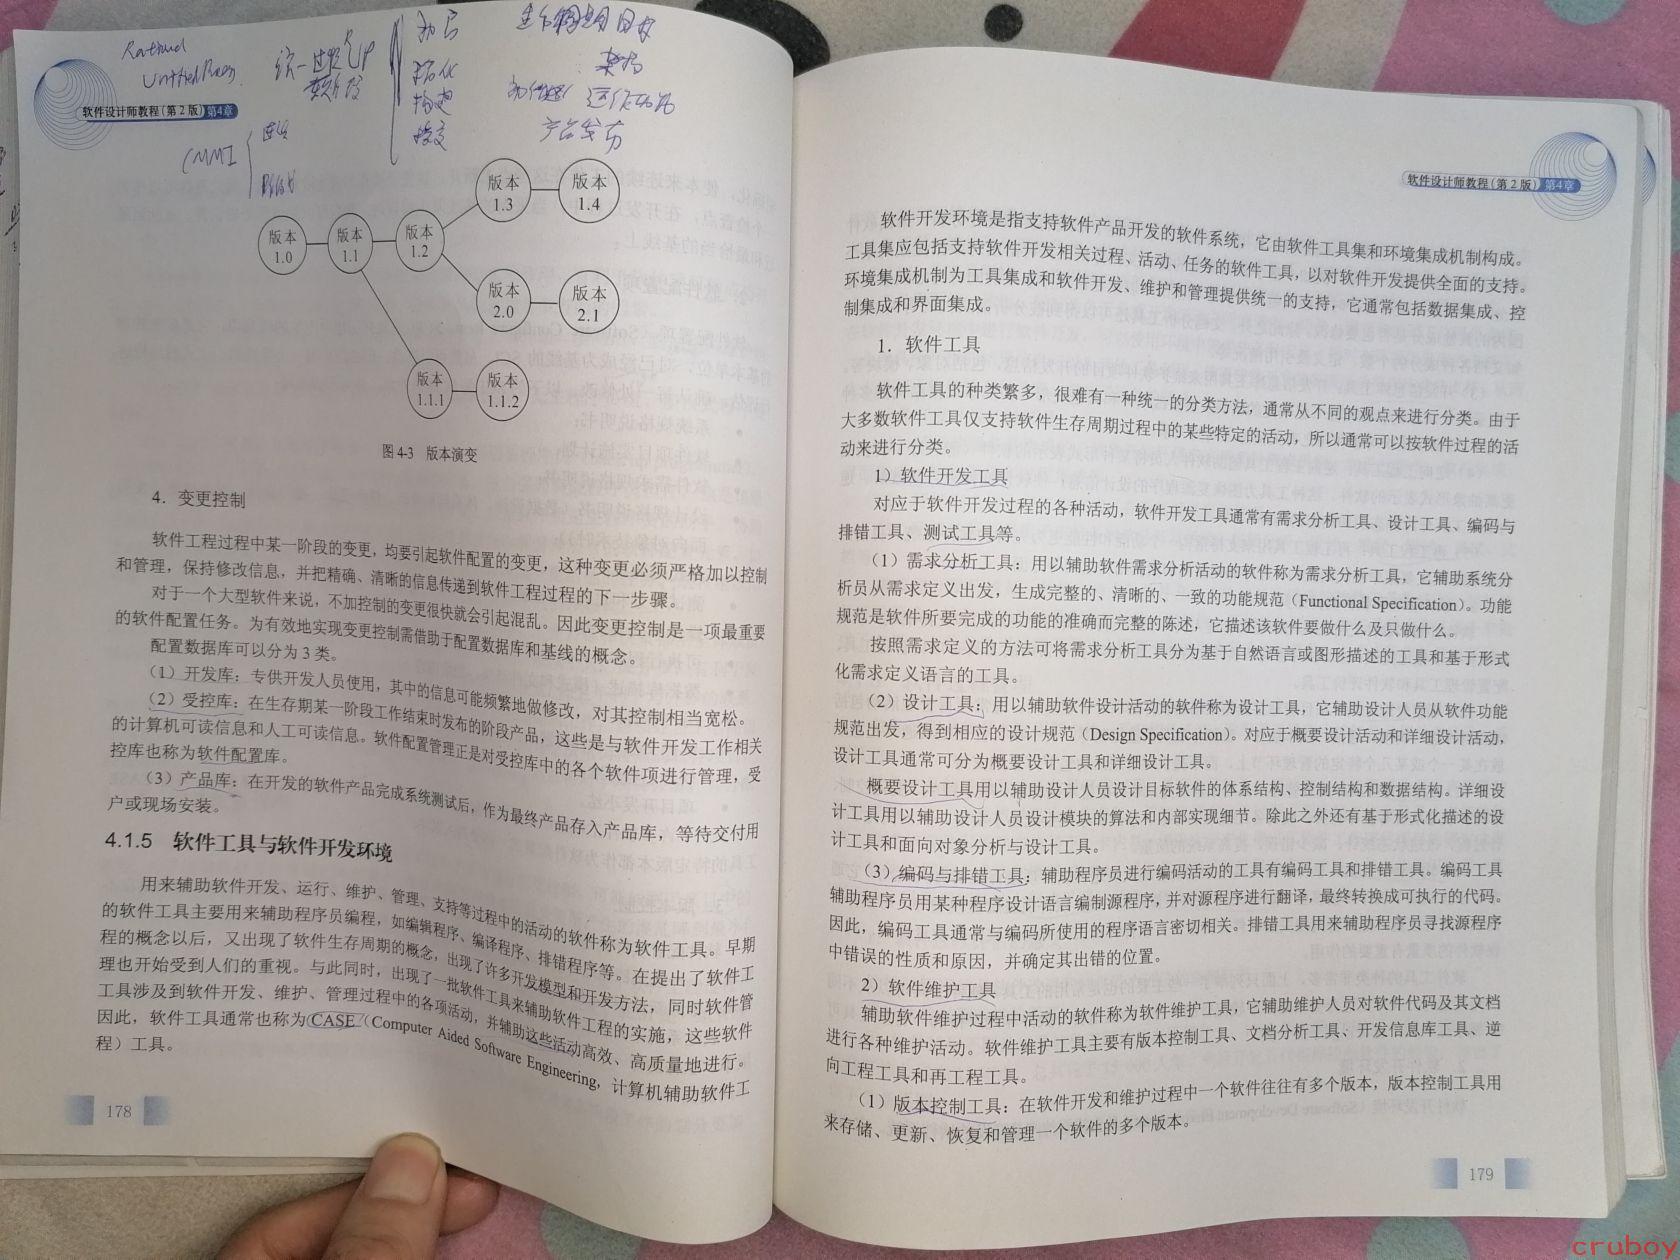 Rational
Unified Process
统一过程 RUP
初启
细化
构建
移交
产品发布
CMMI
软件设计师教程(第2版) 第4章
版本
1.0
版本
1.1
版本
1.2
版本
1.3
版本
1.4
版本
2.0
版本
2.1
版本
1.1.1
版本
1.1.2
图 4-3 版本演变
4．变更控制
软件工程过程中某一阶段的变更，均要引起软件配置的变更，这种变更必须严格加以控制
和管理，保持修改信息，并把精确、清晰的信息传递到软件工程过程的下一步骤。
对于一个大型软件来说，不加控制的变更很快就会引起混乱。因此变更控制是一项最重要
的软件配置任务。为有效地实现变更控制需借助于配置数据库和基线的概念。
配置数据库可以分为 3 类。
（1）开发库：专供开发人员使用，其中的信息可能频繁地做修改，对其控制相当宽松。
（2）受控库：在生存期某一阶段工作结束时发布的阶段产品，这些是与软件开发工作相关
的计算机可读信息和人工可读信息。软件配置管理正是对受控库中的各个软件项进行管理，受
控库也称为软件配置库。
（3）产品库：在开发的软件产品完成系统测试后，作为最终产品存入产品库，等待交付用
户或现场安装。
4.1.5 软件工具与软件开发环境
用来辅助软件开发、运行、维护、管理、支持等过程中的活动的软件称为软件工具。早期
的软件工具主要用来辅助程序员编程，如编辑程序、编译程序、排错程序等。在提出了软件工
程的概念以后，又出现了软件生存周期的概念，出现了许多开发模型和开发方法，同时软件管
理也开始受到人们的重视。与此同时，出现了一批软件工具来辅助软件工程的实施，这些软件
工具涉及到软件开发、维护、管理过程中的各项活动，并辅助这些活动高效、高质量地进行。
因此，软件工具通常也称为 CASE（Computer Aided Software Engineering，计算机辅助软件工
程）工具。
178
软件设计师教程(第2版) 第4章
软件开发环境是指支持软件产品开发的软件系统，它由软件工具集和环境集成机制构成。
工具集应包括支持软件开发相关过程、活动、任务的软件工具，以对软件开发提供全面的支持。
环境集成机制为工具集成和软件开发、维护和管理提供统一的支持，它通常包括数据集成、控
制集成和界面集成。
1．软件工具
软件工具的种类繁多，很难有一种统一的分类方法，通常从不同的观点来进行分类。由于
大多数软件工具仅支持软件生存周期过程中的某些特定的活动，所以通常可以按软件过程的活
动来进行分类。
1）软件开发工具
对应于软件开发过程的各种活动，软件开发工具通常有需求分析工具、设计工具、编码与
排错工具、测试工具等。
（1）需求分析工具：用以辅助软件需求分析活动的软件称为需求分析工具，它辅助系统分
析员从需求定义出发，生成完整的、清晰的、一致的功能规范（Functional Specification）。功能
规范是软件所要完成的功能的准确而完整的陈述，它描述该软件要做什么及只做什么。
按照需求定义的方法可将需求分析工具分为基于自然语言或图形描述的工具和基于形式
化需求定义语言的工具。
（2）设计工具：用以辅助软件设计活动的软件称为设计工具，它辅助设计人员从软件功能
规范出发，得到相应的设计规范（Design Specification）。对应于概要设计活动和详细设计活动，
设计工具通常可分为概要设计工具和详细设计工具。
概要设计工具用以辅助设计人员设计目标软件的体系结构、控制结构和数据结构。详细设
计工具用以辅助设计人员设计模块的算法和内部实现细节。除此之外还有基于形式化描述的设
计工具和面向对象分析与设计工具。
（3）编码与排错工具：辅助程序员进行编码活动的工具有编码工具和排错工具。编码工具
辅助程序员用某种程序设计语言编制源程序，并对源程序进行翻译，最终转换成可执行的代码。
因此，编码工具通常与编码所使用的程序语言密切相关。排错工具用来辅助程序员寻找源程序
中错误的性质和原因，并确定其出错的位置。
2）软件维护工具
辅助软件维护过程中活动的软件称为软件维护工具，它辅助维护人员对软件代码及其文档
进行各种维护活动。软件维护工具主要有版本控制工具、文档分析工具、开发信息库工具、逆
向工程工具和再工程工具。
（1）版本控制工具：在软件开发和维护过程中一个软件往往有多个版本，版本控制工具用
来存储、更新、恢复和管理一个软件的多个版本。
179
cruboy